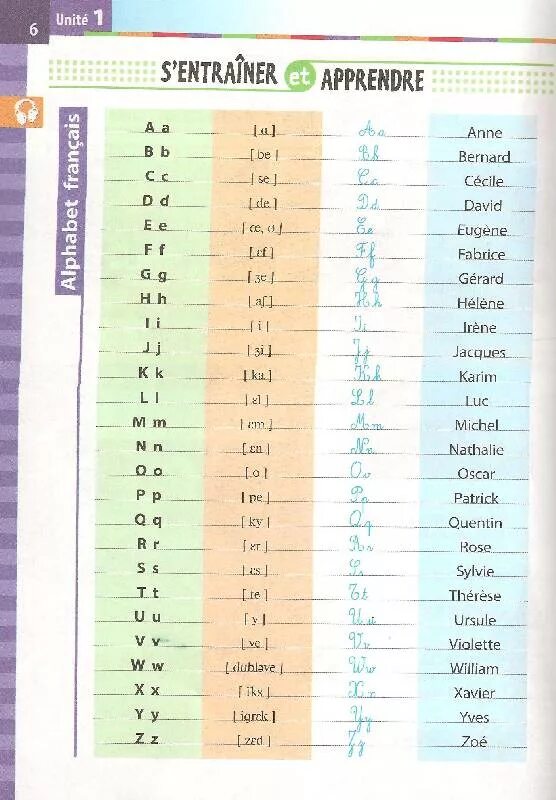 6 Unité 1
S'ENTRAÎNER et APPRENDRE
Alphabet français
A a [ɑ] Aa Anne
B b [be] Bb Bernard
C c [se] Cc Cécile
D d [de] Dd David
E e [œ, ə] Ee Eugène
F f [ɛf] Ff Fabrice
G g [ʒe] Gg Gérard
H h [aʃ] Hh Hélène
I i [i] Ii Irène
J j [ʒi] Jj Jacques
K k [ka] Kk Karim
L l [ɛl] Ll Luc
M m [ɛm] Mm Michel
N n [ɛn] Nn Nathalie
O o [o] Oo Oscar
P p [pe] Pp Patrick
Q q [ky] Qq Quentin
R r [ɛr] Rr Rose
S s [ɛs] Ss Sylvie
T t [te] Tt Thérèse
U u [y] Uu Ursule
V v [ve] Vv Violette
W w [dublǝve] Ww William
X x [iks] Xx Xavier
Y y [igrɛk] Yy Yves
Z z [zɛd] Zz Zoé